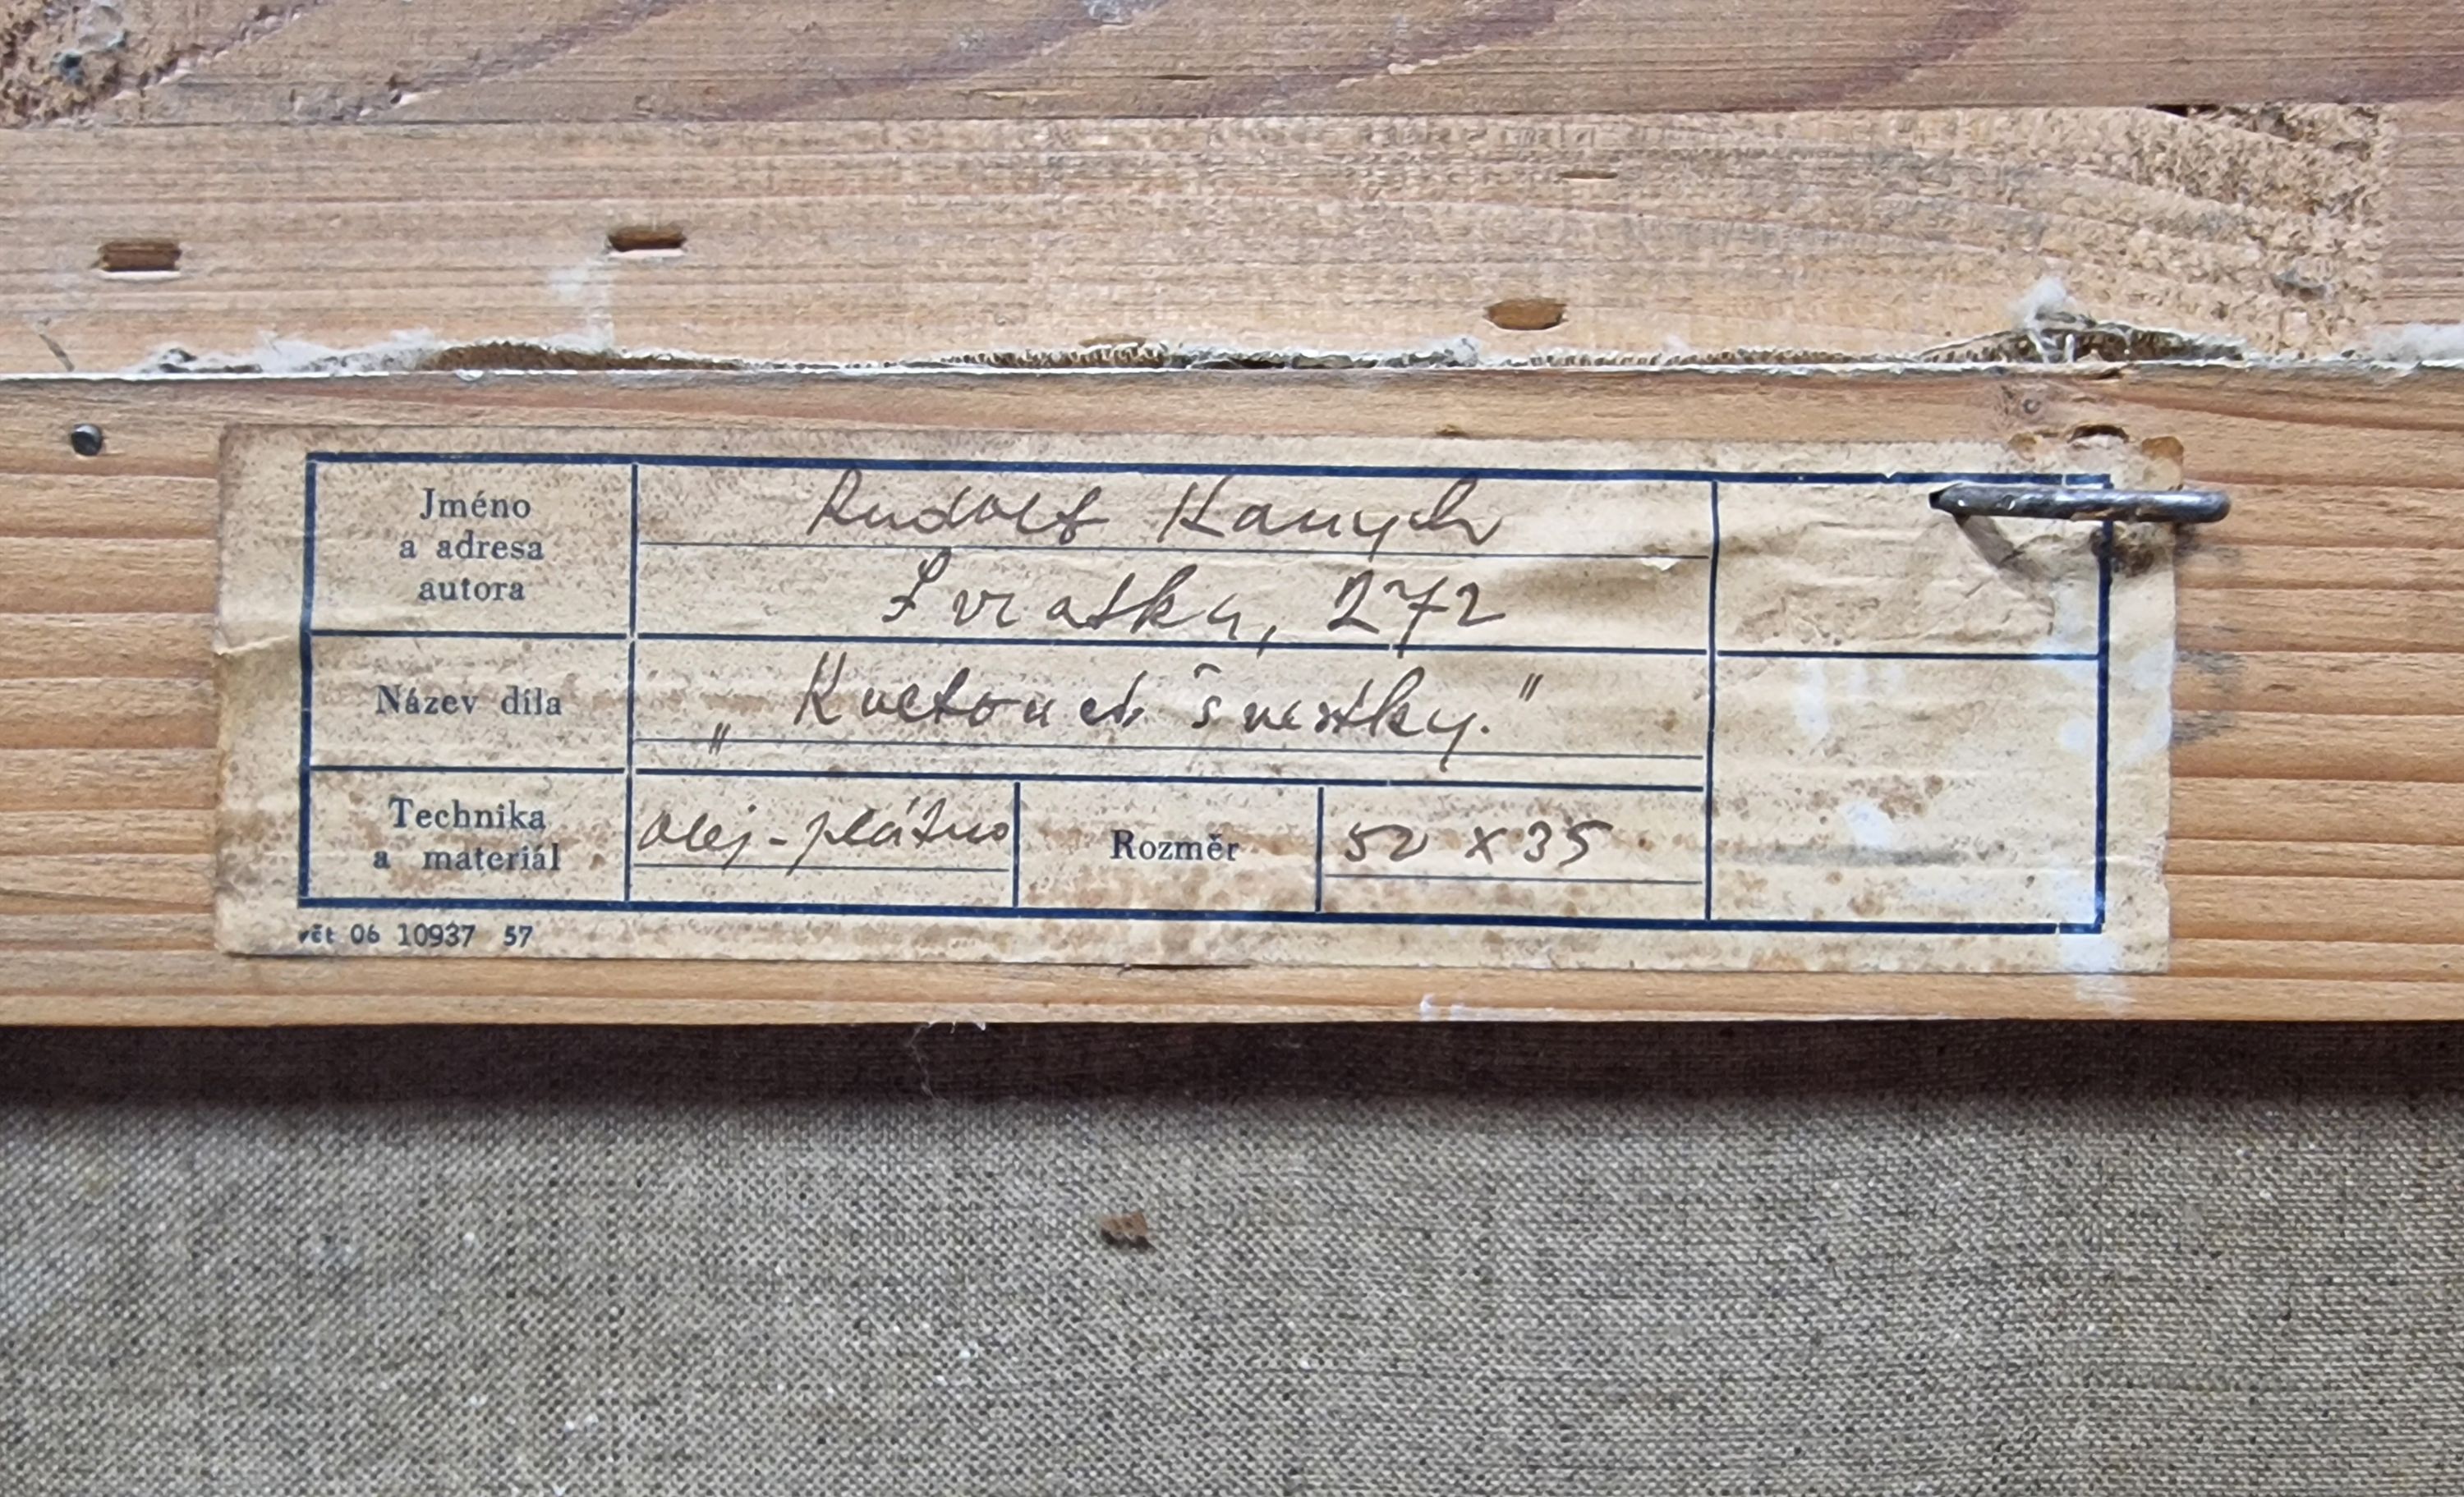 Jméno
a adresa
autora
Rudolf Hanych
Svratka, 272
Název díla
„Kvetoucí švestky."
Technika
a materiál
olej-plátno
Rozměr
50 x 35
06 10937 57